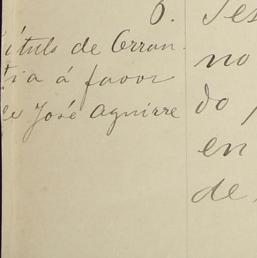 6.
ítulo de Erran-
tia á favor
de José Aguirre
no
do
en
de